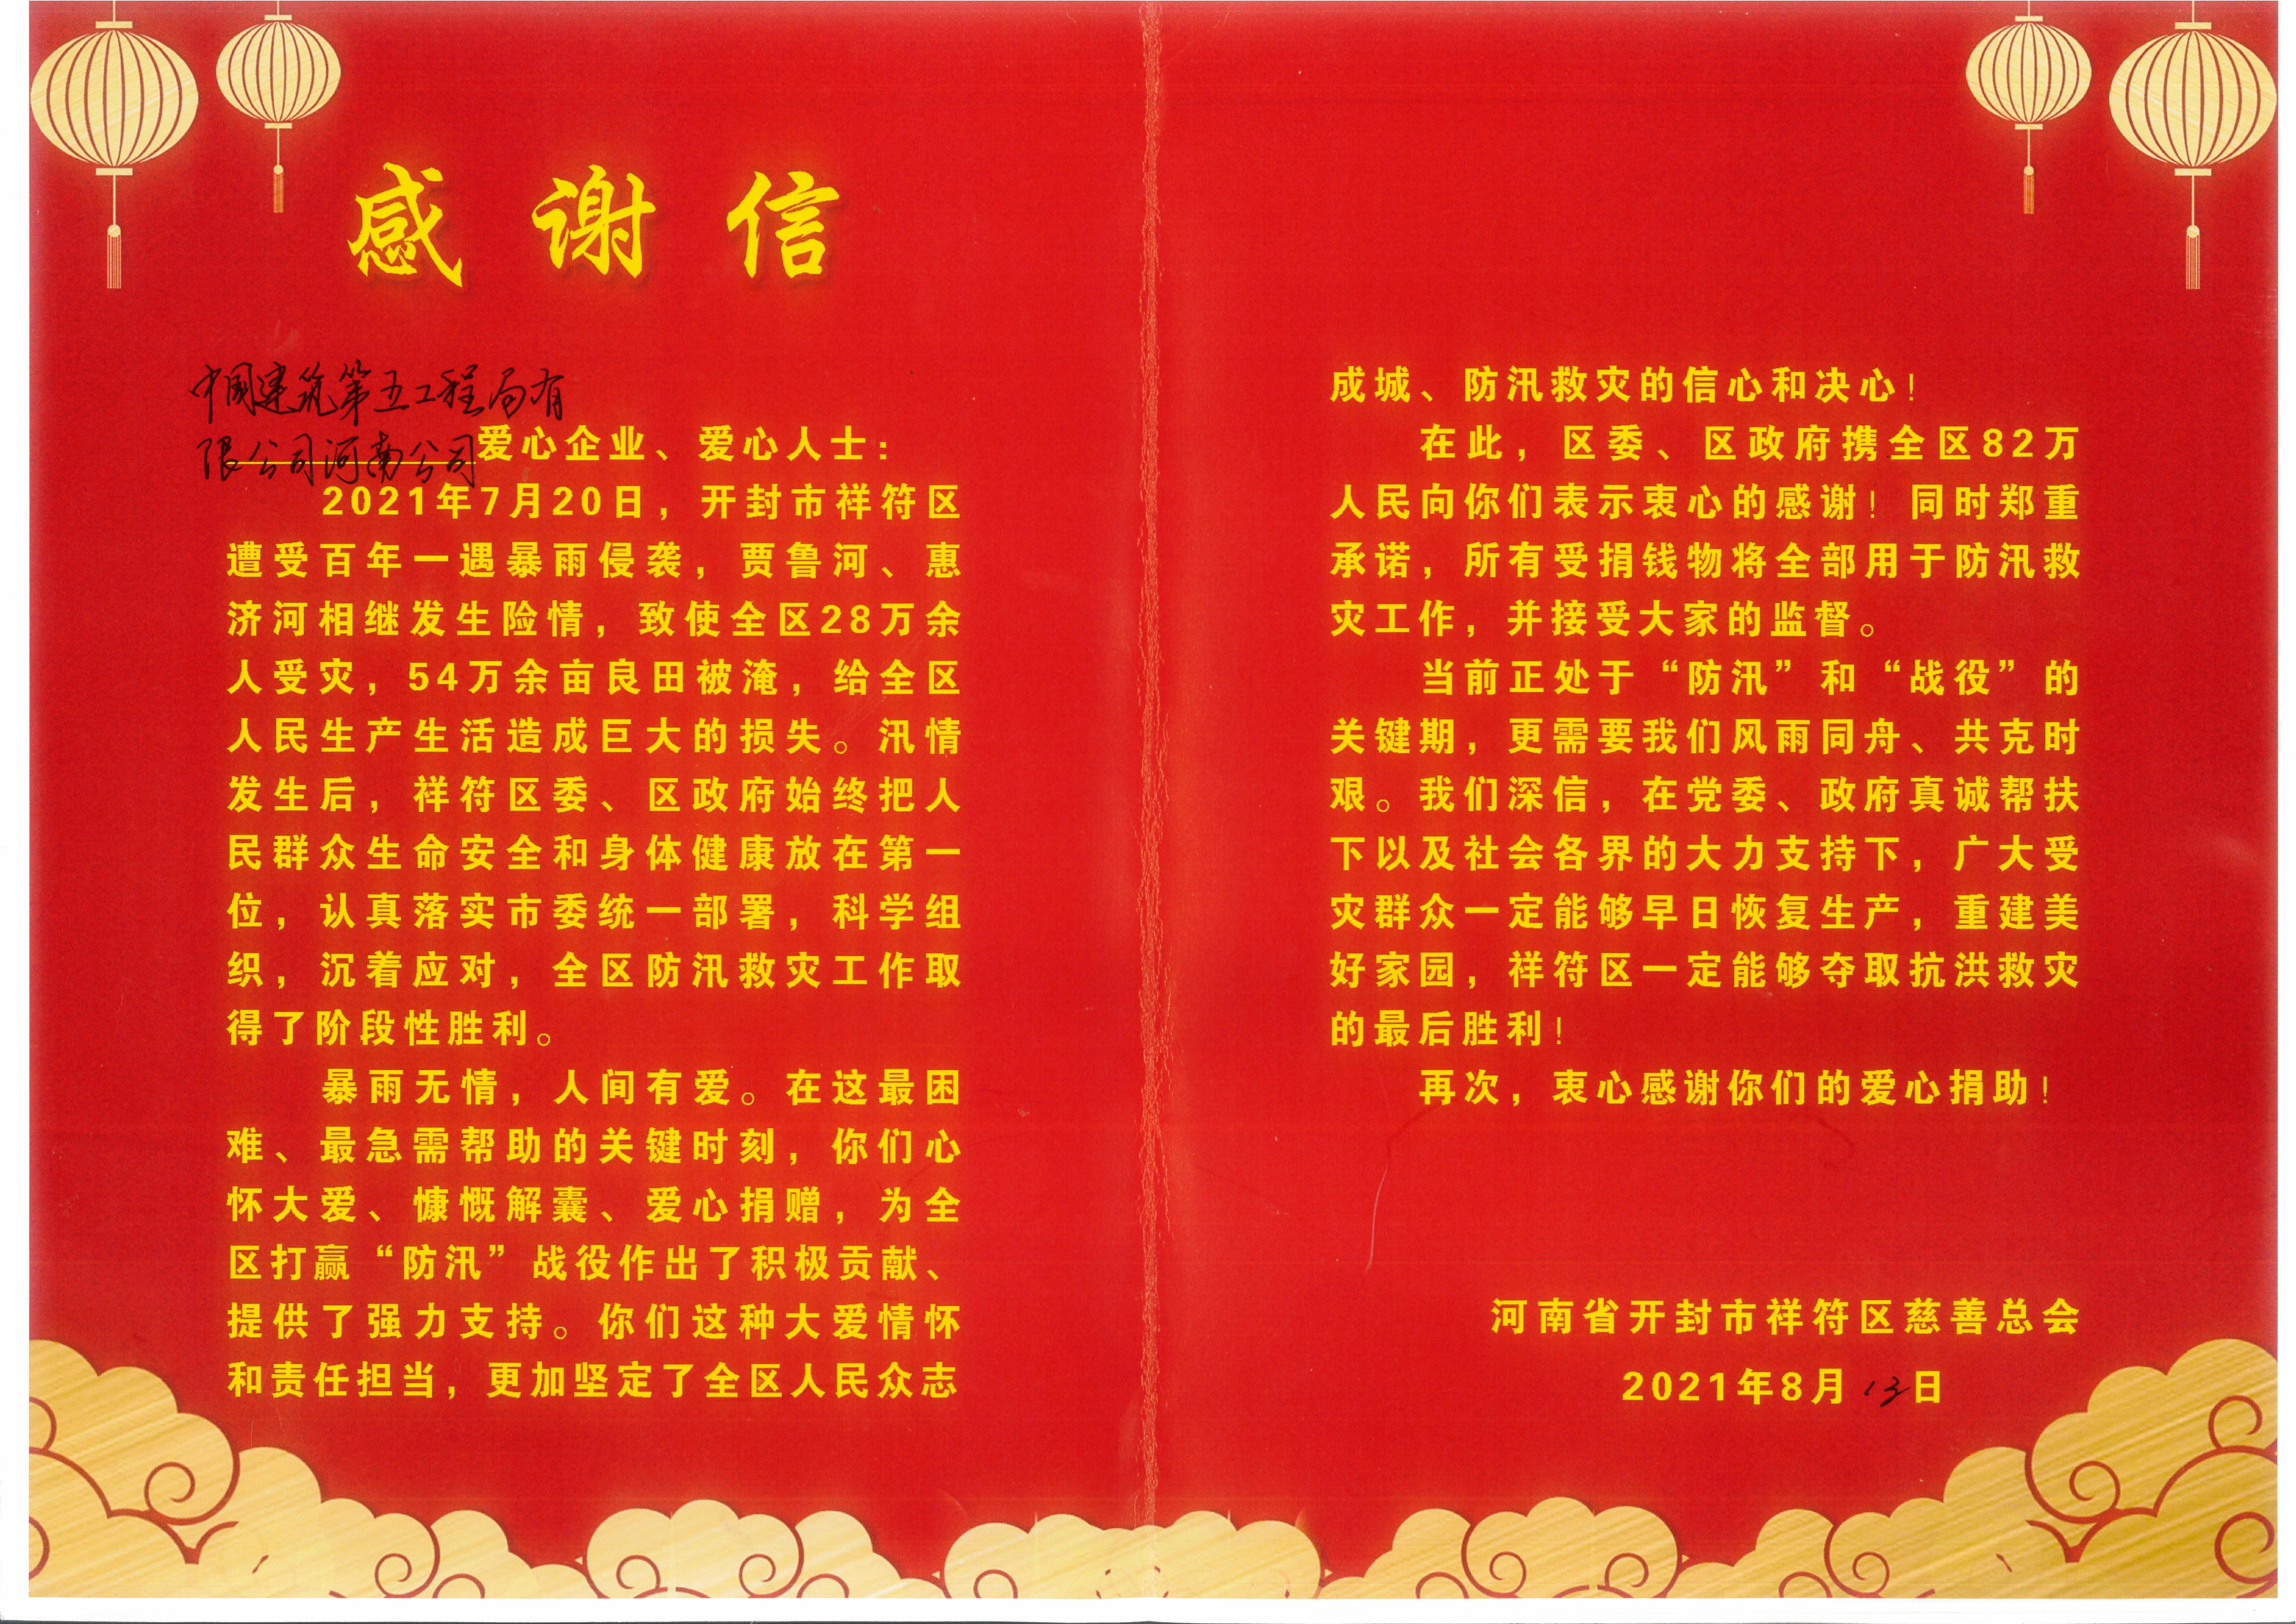 感谢信
中国建筑第五工程局有
限公司河南公司爱心企业、爱心人士：
2021年7月20日，开封市祥符区
遭受百年一遇暴雨侵袭，贾鲁河、惠
济河相继发生险情，致使全区28万余
人受灾，54万余亩良田被淹，给全区
人民生产生活造成巨大的损失。汛情
发生后，祥符区委、区政府始终把人
民群众生命安全和身体健康放在第一
位，认真落实市委统一部署，科学组
织，沉着应对，全区防汛救灾工作取
得了阶段性胜利。
暴雨无情，人间有爱。在这最困
难、最急需帮助的关键时刻，你们心
怀大爱、慷慨解囊、爱心捐赠，为全
区打赢“防汛”战役作出了积极贡献、
提供了强力支持。你们这种大爱情怀
和责任担当，更加坚定了全区人民众志
成城、防汛救灾的信心和决心！
在此，区委、区政府携全区82万
人民向你们表示衷心的感谢！同时郑重
承诺，所有受捐钱物将全部用于防汛救
灾工作，并接受大家的监督。
当前正处于“防汛”和“战役”的
关键期，更需要我们风雨同舟、共克时
艰。我们深信，在党委、政府真诚帮扶
下以及社会各界的大力支持下，广大受
灾群众一定能够早日恢复生产，重建美
好家园，祥符区一定能够夺取抗洪救灾
的最后胜利！
再次，衷心感谢你们的爱心捐助！
河南省开封市祥符区慈善总会
2021年8月13日